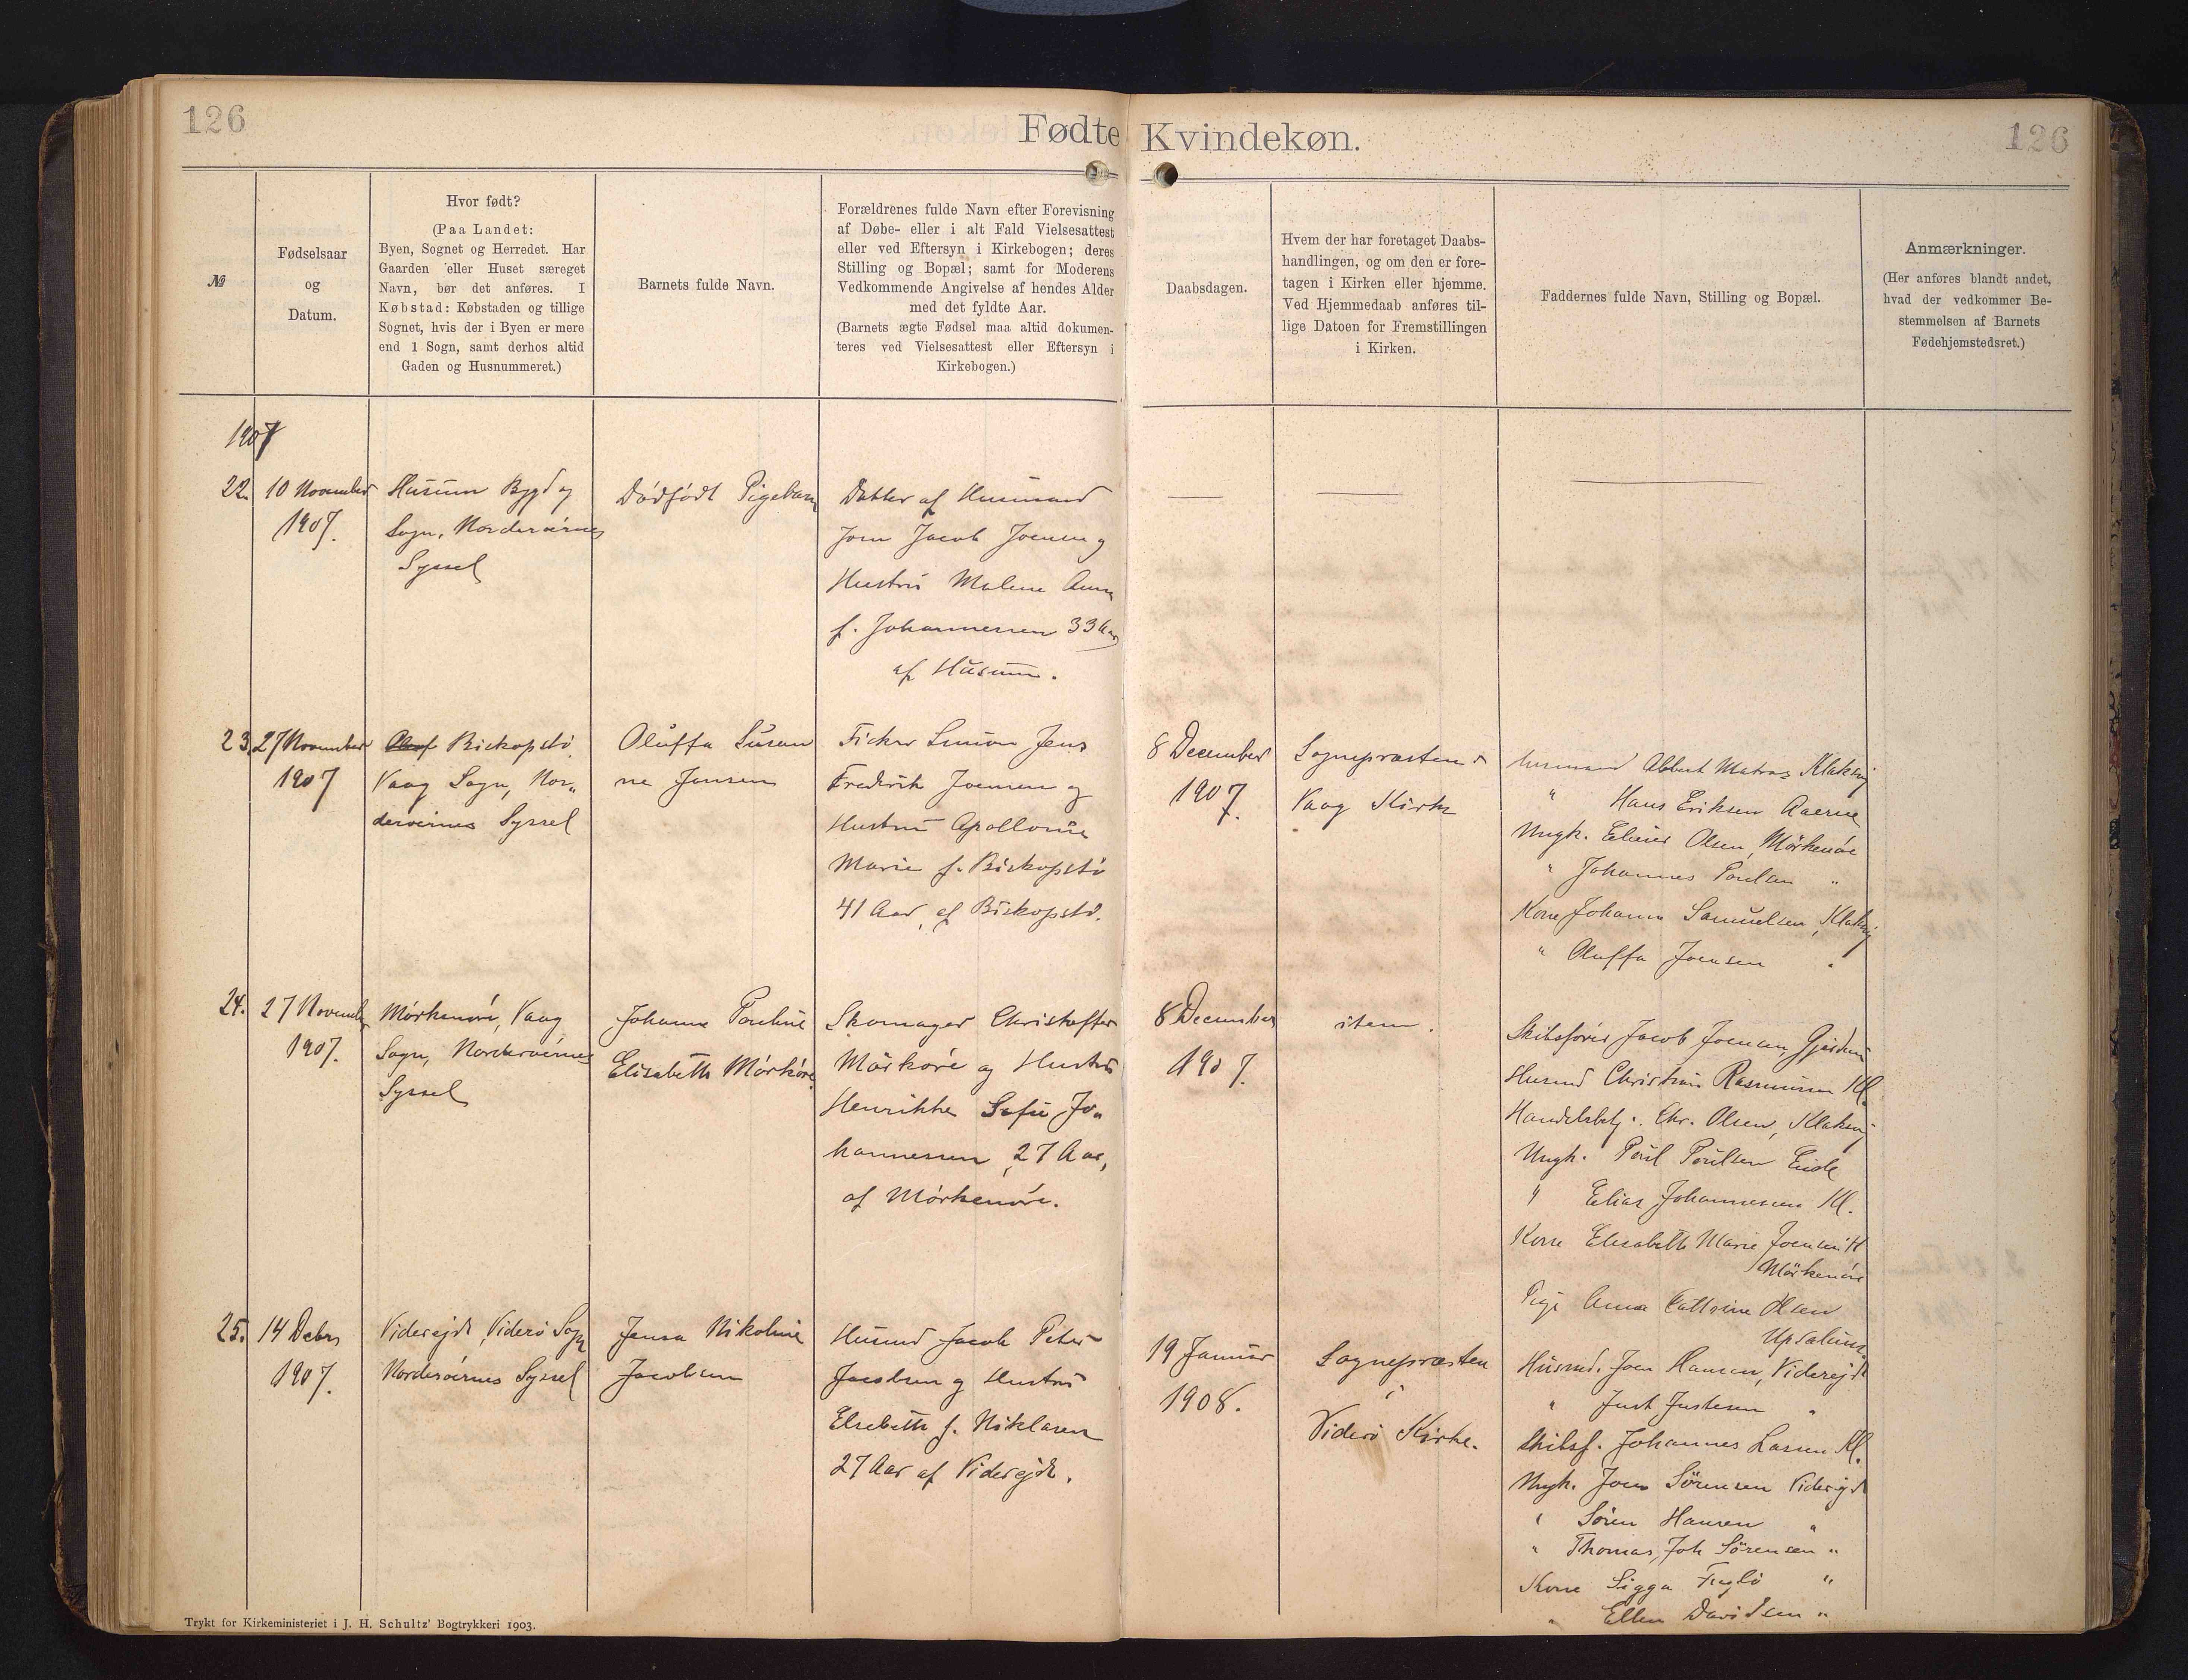 126
Fødte Kvindekøn.
126
№
Fødselsaar
og
Datum.
Hvor født?
(Paa Landet:
Byen, Sognet og Herredet. Har
Gaarden eller Huset særeget
Navn, bør det anføres. I
Købstad: Købstaden og tillige
Sognet, hvis der i Byen er mere
end 1 Sogn, samt derhos altid
Gaden og Husnummeret.)
Barnets fulde Navn.
Forældrenes fulde Navn efter Forevisning
af Døbe- eller i alt Fald Vielsesattest
eller ved Eftersyn i Kirkebogen; deres
Stilling og Bopæl; samt for Moderens
Vedkommende Angivelse af hendes Alder
med det fyldte Aar.
(Barnets ægte Fødsel maa altid dokumen-
teres ved Vielsesattest eller Eftersyn i
Kirkebogen.)
Daabsdagen.
Hvem der har foretaget Daabs-
handlingen, og om den er fore-
tagen i Kirken eller hjemme.
Ved Hjemmedaab anføres til-
lige Datoen for Fremstillingen
i Kirken.
Faddernes fulde Navn, Stilling og Bopæl.
Anmærkninger.
(Her anføres blandt andet,
hvad der vedkommer Be-
stemmelsen af Barnets
Fødehjemstedsret.)
1907
22.
10 November
1907.
Husum Bygd og
Sogn, Norderøernes
Syssel
Dødfødt Pigebarn
Datter af Husmand
Joen Jacob Joensen og
Hustru Malene Anna
f. Johannesen 33 Aar
af Husum.
23.
27 November
1907
Biskopstø
Vaag Sogn, Nor„
derøernes Syssel
Oluffa Susan
ne Jensen
Fisker Simon Jens
Frederik Joensen og
Hustru Apollonia
Marie f. Biskopstø
41 Aar, af Biskopstø.
8 December
1907.
Sognepræsten
Vaag Kirke
Husmand Abbert Matras Klaksvig
" Hans Eriksen Aaerne
Ungk. Olsen, Mørkenøre
" Johannes Poulsen "
Kone Johanna Samuelsen, Klaksvig
" Oluffa Joensen "
24.
27 November
1907.
Mørkenøre, Vaag
Sogn, Norderøernes
Syssel
Johanne Pouline
Elisabeth Mørkøre
Skomager Christoffer
Mørkøre og Hustru
Henrikke Sofie Jo„
hannesen, 27 Aar,
af Mørkenøre.
8 December
1907.
item.
Skibsfører Jacob Joensen, Gjerdum
Husmd Christian Rasmussen Kl.
Handelsbetj. Chr. Olsen, Klaksvig
Ungk. Poul Poulsen Eide
" Elias Johannesen Kl.
Kone Elisabeth Marie Joensen
Mørkenøre
Pige Anna Cathrine Olsen
Upsalum
25.
14 Debr
1907.
Viderejde, Viderø Sogn
Norderøernes Syssel
Jensa Nikoline
Jacobsen
Husmd Jacob Peter
Jacobsen og Hustru
Elsebeth f. Niklasen
27 Aar af Viderejde.
19 Januar
1908.
Sognepræsten
i
Viderø Kirke.
Husmd. Joen Hansen, Viderejde
" Just Justesen "
Skibsf. Johannes Larsen Kl.
Ungk. Joen Sørensen Viderejde
" Søren Hansen "
" Thomas Joh Sørensen "
Kone Sigga Fuglø "
" Ellen Davidsen "
Trykt for Kirkeministeriet i J. H. Schultz' Bogtrykkeri 1903.